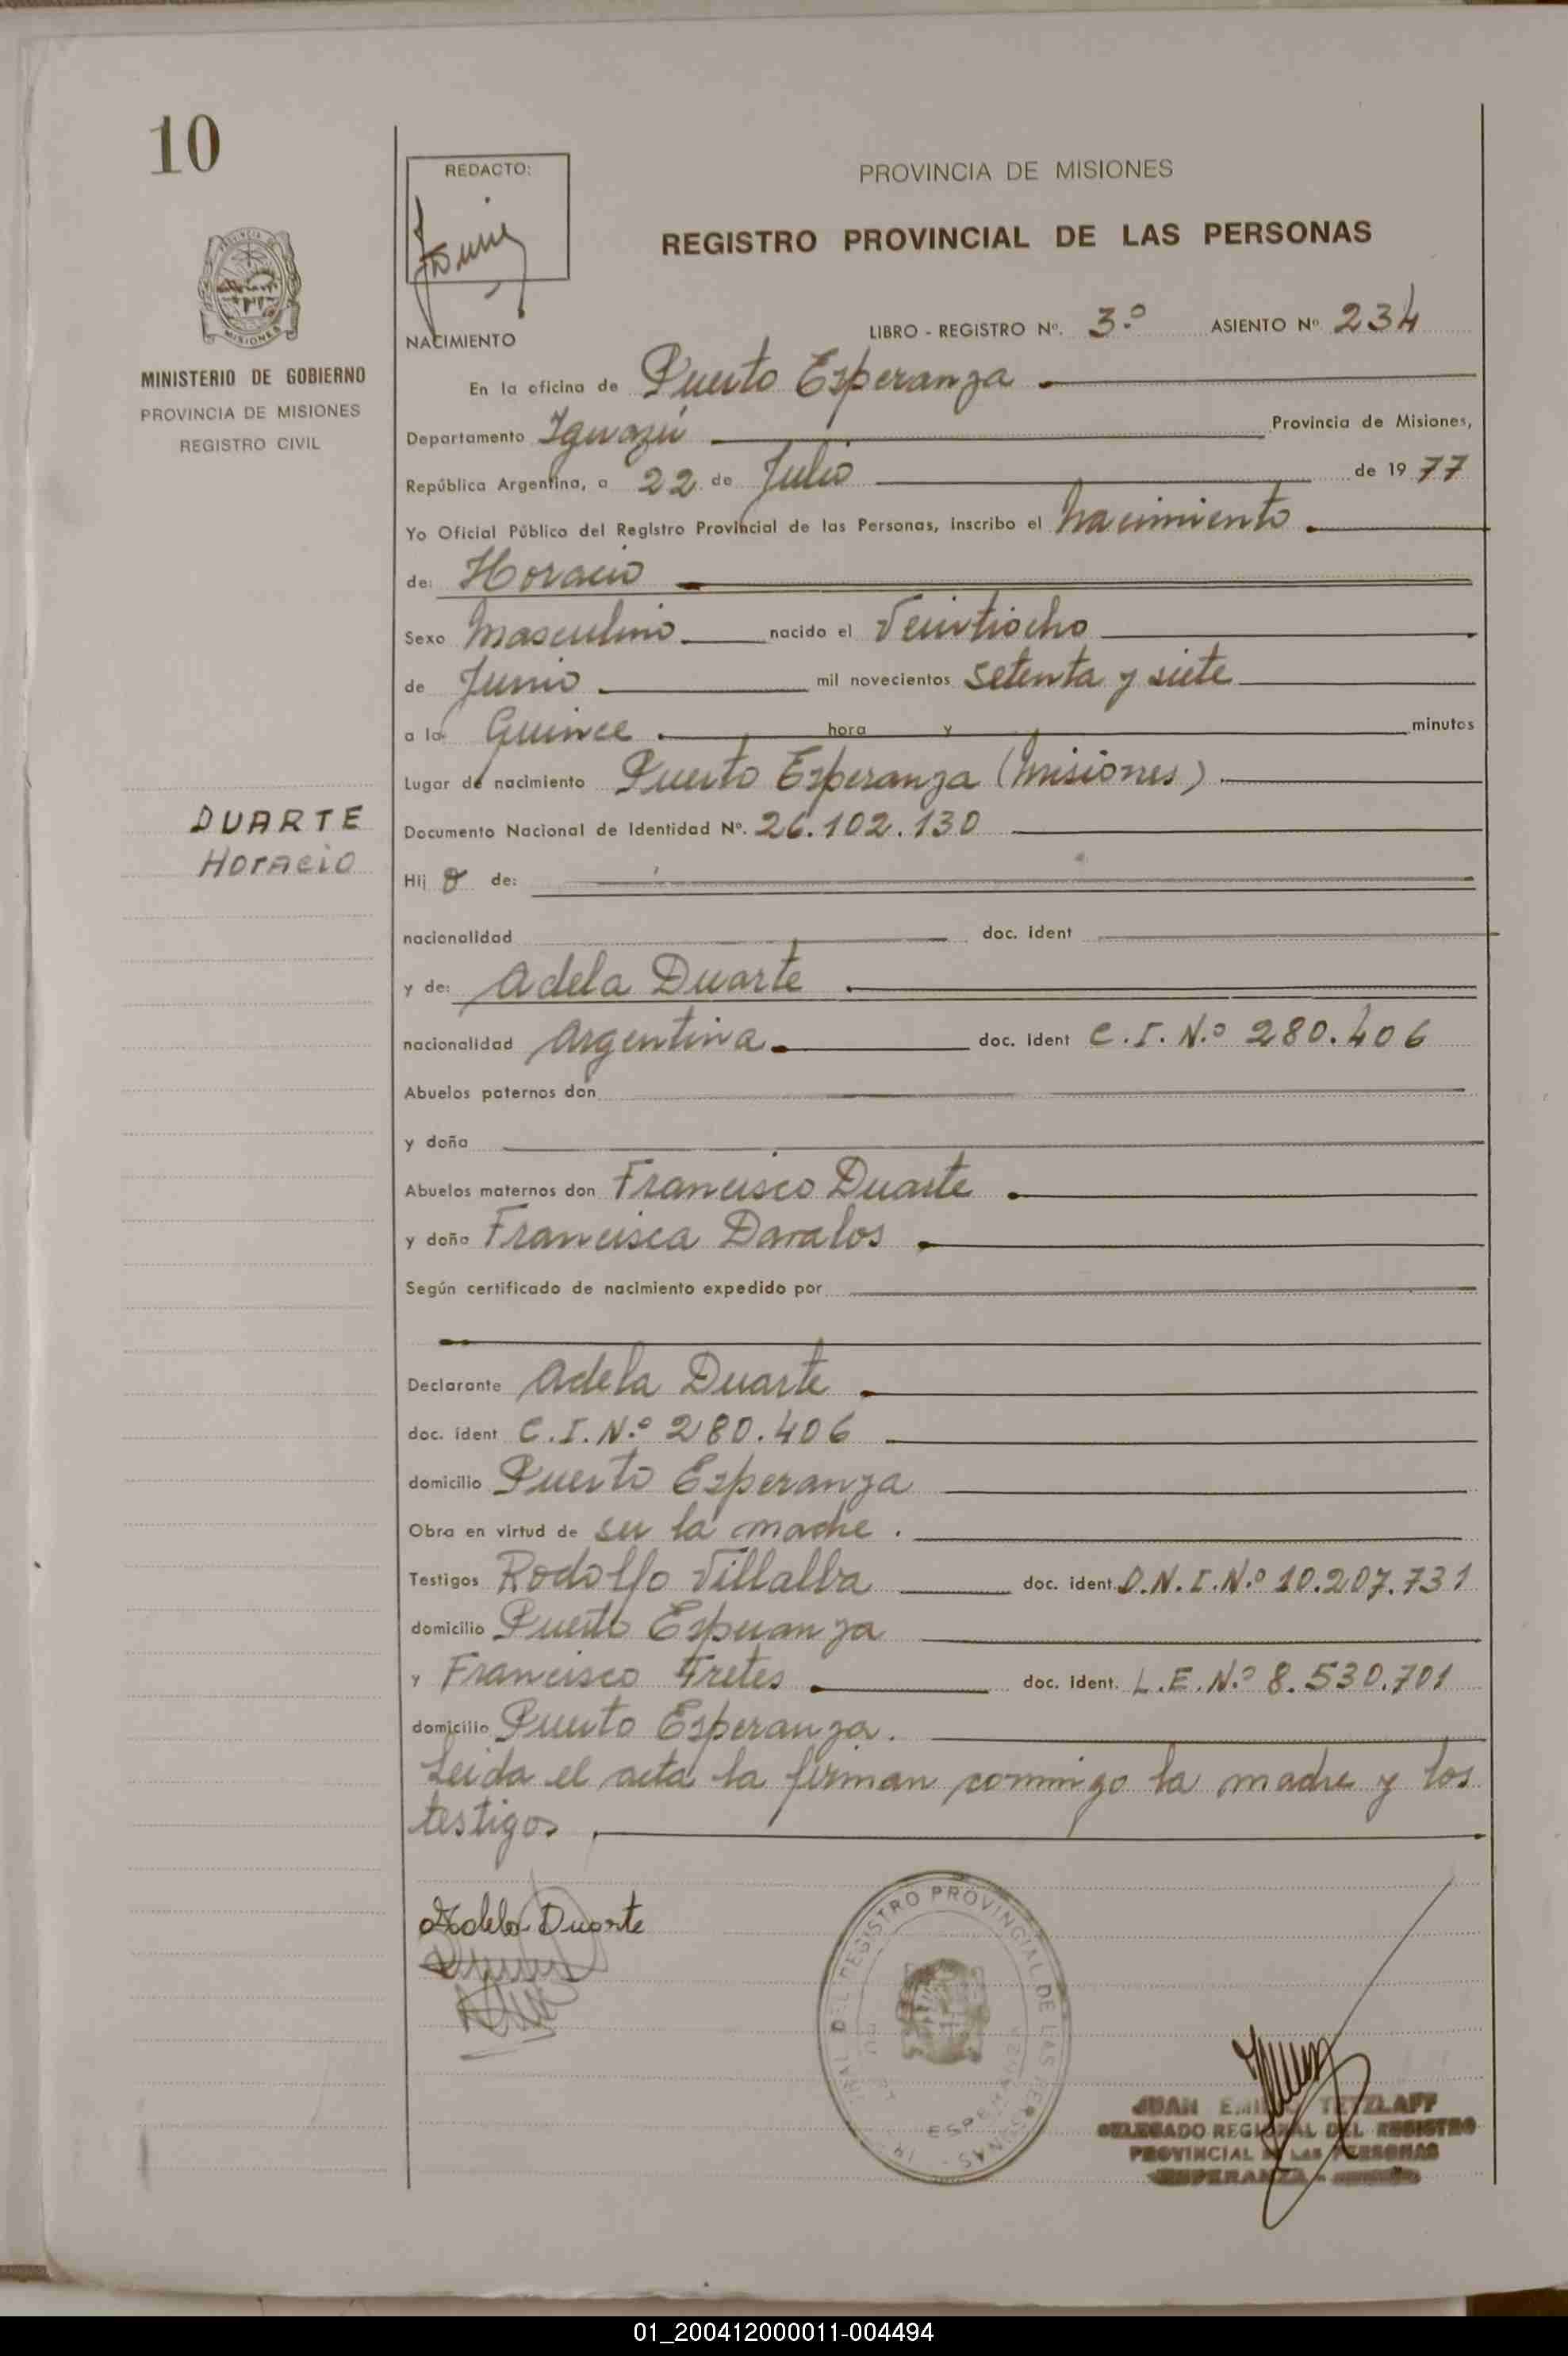 10
REDACTO:
PROVINCIA DE MISIONES
REGISTRO PROVINCIAL DE LAS PERSONAS
PROVINCIA DE
MISIONES
MINISTERIO DE GOBIERNO
PROVINCIA DE MISIONES
REGISTRO CIVIL
LIBRO - REGISTRO Nº. 3.º ASIENTO Nº 234
NACIMIENTO
En la oficina de Puerto Esperanza
Departamento Iguazú Provincia de Misiones,
República Argentina, a 22 de Julio de 19 77
Yo Oficial Público del Registro Provincial de las Personas, inscribo el nacimiento
de: Horacio
Sexo Masculino nacido el Veintiocho
de Junio mil novecientos setenta y siete
a la Quince hora y minutos
Lugar de nacimiento Puerto Esperanza (Misiones)
DUARTE
Horacio
Documento Nacional de Identidad Nº. 26.102.130
Hij o de:
nacionalidad doc. ident
y de: Adela Duarte
nacionalidad Argentina doc. ident C.I.N.º 280.406
Abuelos paternos don
y doña
Abuelos maternos don Francisco Duarte
y doña Francisca Davalos
Según certificado de nacimiento expedido por
Declarante Adela Duarte
doc. ident C.I.N.º 280.406
domicilio Puerto Esperanza
Obra en virtud de ser la madre.
Testigos Rodolfo Villalba doc. ident. D.N.I.N.º 10.207.731
domicilio Puerto Esperanza
y Francisco Fretes doc. ident. L.E.N.º 8.530.701
domicilio Puerto Esperanza.
Leida el acta la firman conmigo la madre y los
testigos
Adela Duarte
DEL REGISTRO PROVINCIAL DE LAS PERSONAS
ESPERANZA
JUAN EMILIO TETZLAFF
DELEGADO REGIONAL DEL REGISTRO
PROVINCIAL DE LAS PERSONAS
ESPERANZA
01_200412000011-004494